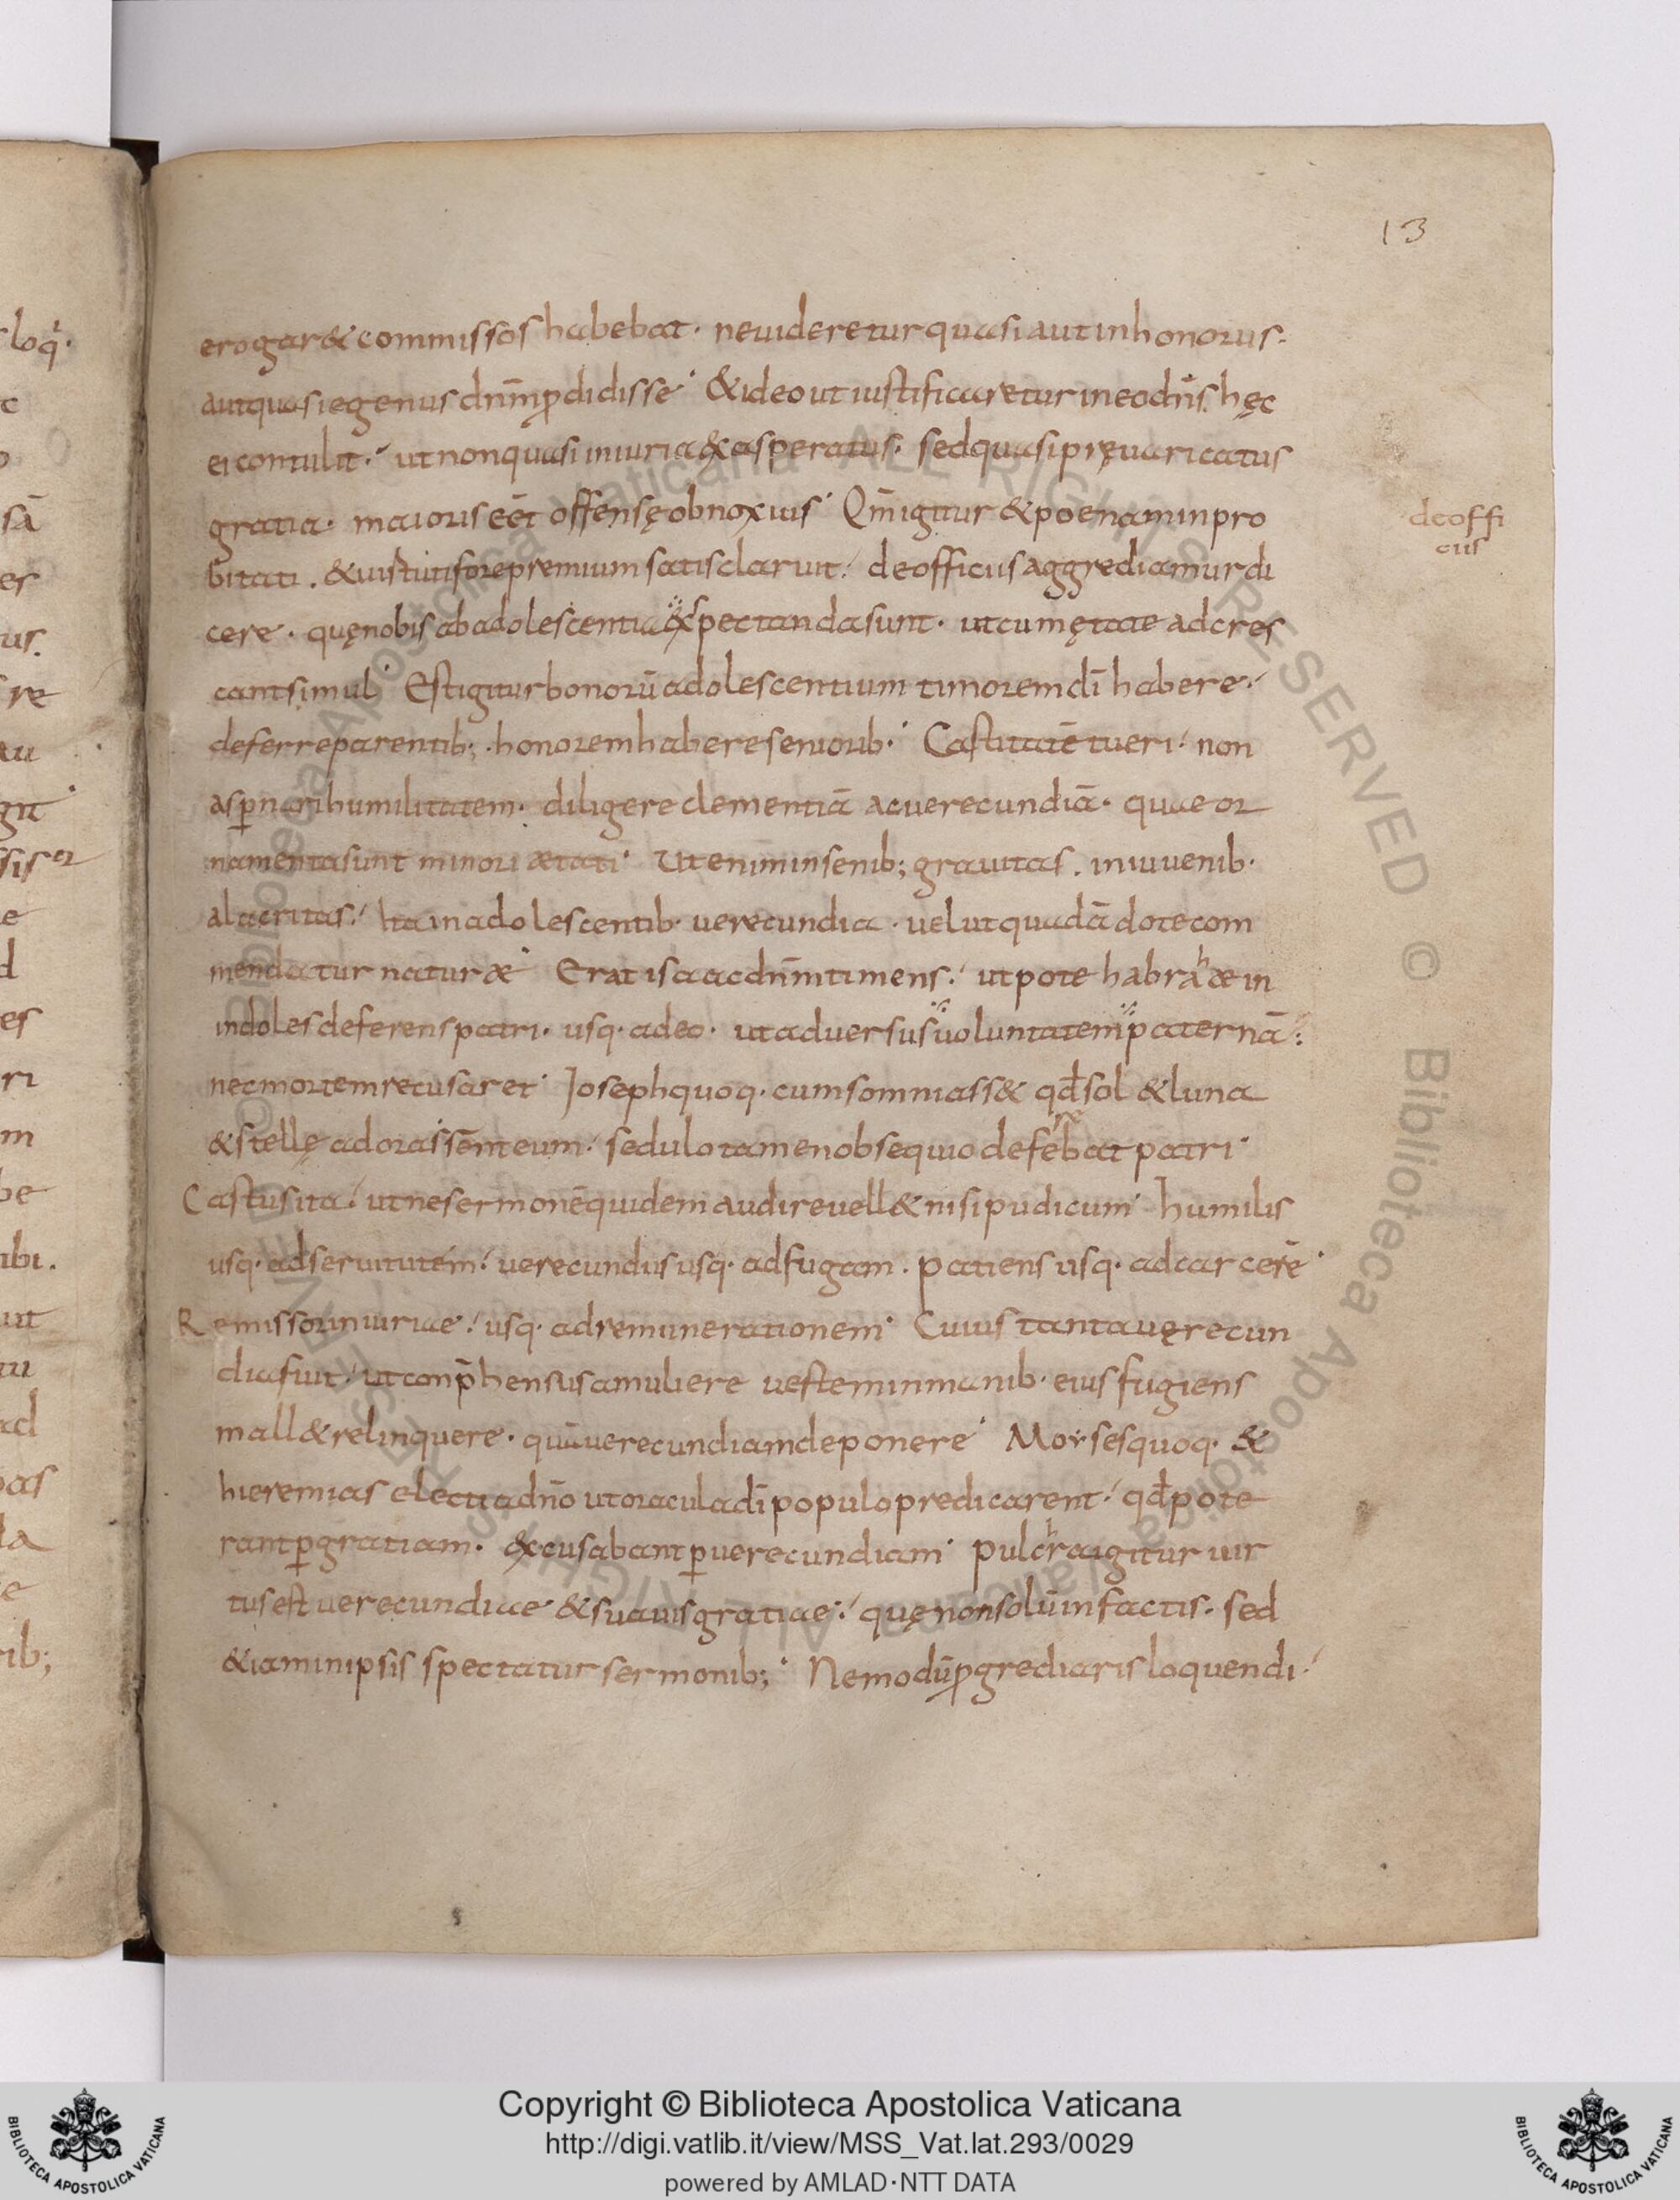 13
erogar& commissos habebat· neuideretur quasi aut inhonorus·
aut quasi egenus dnm̄ ꝓdidisse· & ideo ut iustificaretur in eo dn̄s. hęc
ei contulit·/ ut non quasi iniuria &asperatus· sed quasi pręuaricatus
gratia· maioris eēt offensę obnoxius· Qm̄ igitur & poenam inpro
bitati. & uirtuti fore premium satis claruit·/ de officiis aggrediamur di
cere· quę nobis ab adolescentia &spectanda sunt· ut cum ętate adcres
cant simul· Est igitur bonorū adolescentium timorem dī habere·/
deferre parentib;· honorem habere seniorib·· Castitatē tueri·/ non
asꝑnari humilitatem· diligere clementiā ac uerecundiā· quae or
namenta sunt minori ætati· Ut enim in senib; grauitas. in iuuenib·
alacritas·/ Ita in adolescentib· uerecundia· uelut quadā dote com
mendatur naturæ· Erat isaac dnm̄ timens·/ utpote habrahæ in
indoles deferens patri· usq· adeo· ut aduersus uoluntatem paternā·/:
nec mortem recusaret· Joseph quoq· cum somniass& qđ sol & luna
& stellę adorassēnt eum·/ sedulo tamen obsequio deferebat patri·
Castus ita·/ ut ne sermonē quidem audire uell& nisi pudicum· humilis
usq· ad seruitutem·/ uerecundus usq· ad fugam. patiens usq· ad carcerē·
Remissor iniuriae·/ usq· ad remunerationem· Cuius tanta uęrecun
dia fuit·/ ut conp̄hensus a muliere uestem in manib· eius fugiens
mall& relinquere· quā uerecundiam deponere· Moyses quoq· &
hieremias electi a dn̄o ut oracula dī populo predicarent·/ qđ pote
rant ꝑ gratiam· &cusabant ꝑ uerecundiam· pulchra igitur uir
tus est uerecundiae & suauis gratiae·/ quę non solū in factis· sed
&iam in ipsis spectatur sermonib;· Ne modū ꝓgrediaris loquendi·/
de offi
ciis
Copyright © Biblioteca Apostolica Vaticana
http://digi.vatlib.it/view/MSS_Vat.lat.293/0029
powered by AMLAD·NTT DATA